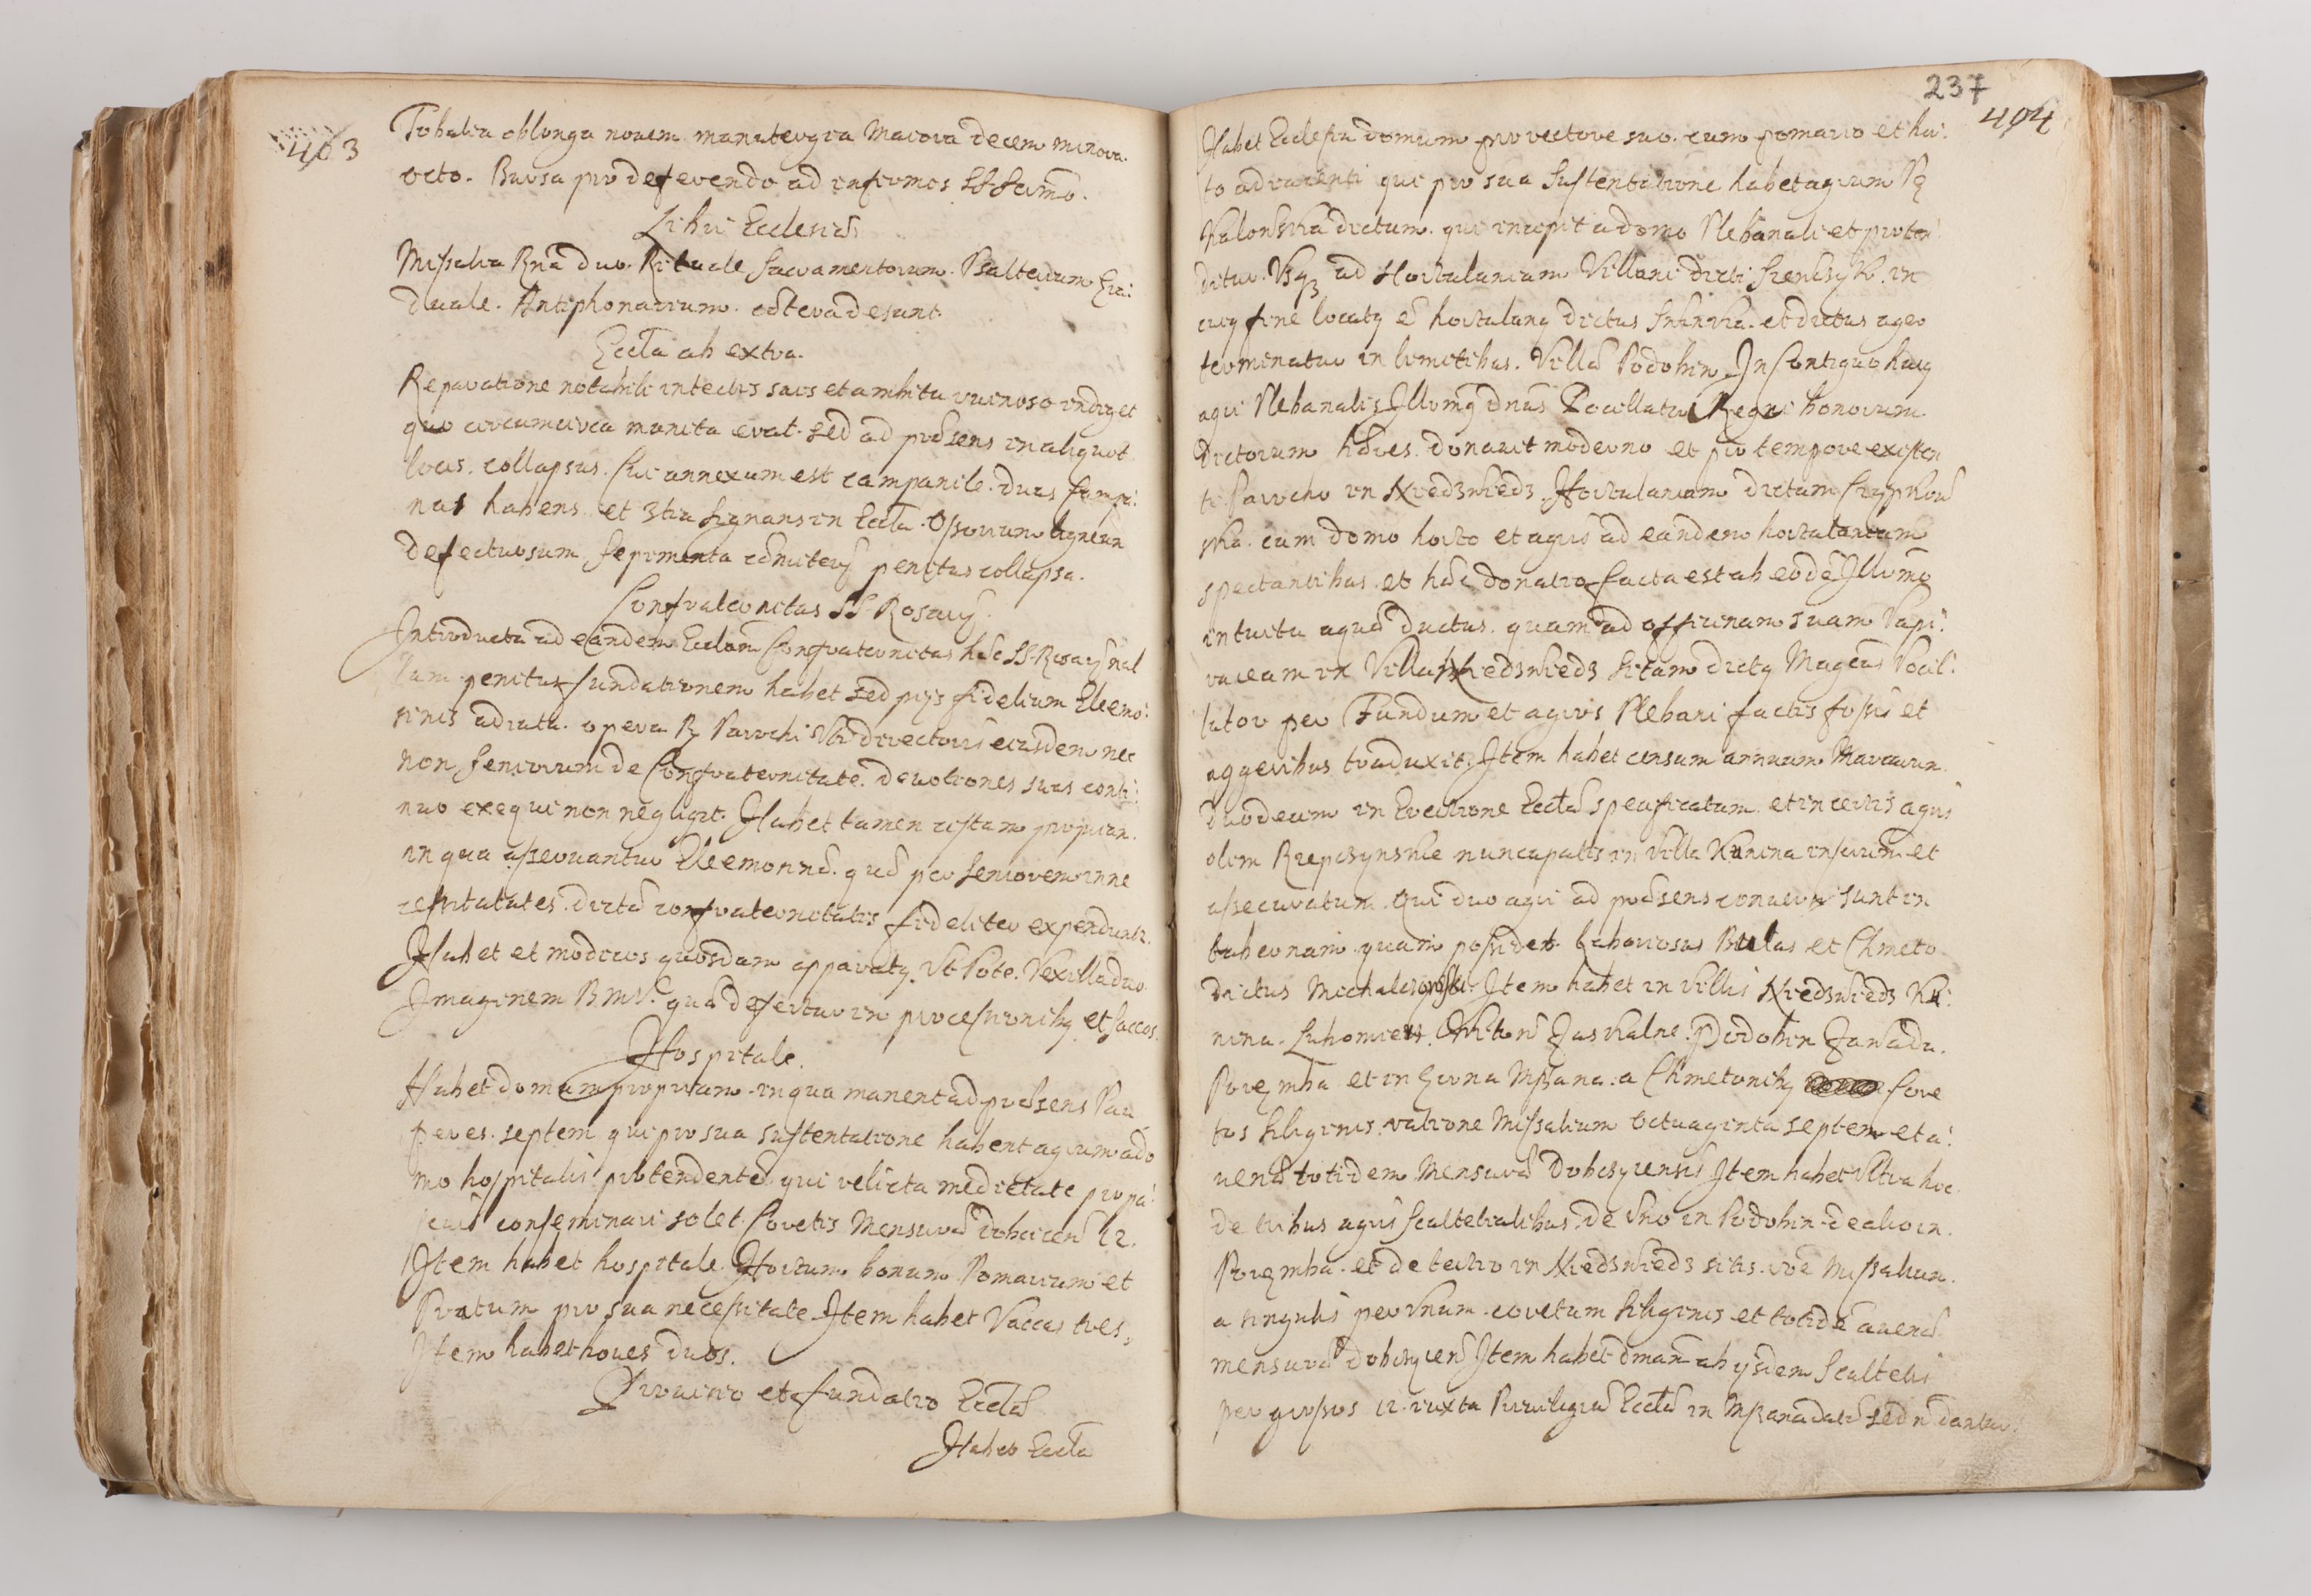 403
Tobalia oblonga novem manutergia Maiora decem minora
octo. Bursa pro deferendo ad infirmos SSSermo.
Libri Ecclesiæ
Missalia Rna duo. Rituale Sacramentorum. Psalterium Gra:
duale. Antiphonarium. cætera desunt.
Eccla ab extra.
Reparatione notabili in tectis suis et ambitu ruinoso indiget
quo circumcirca munita erat. sed ad præsens in aliquot
locis. collapsus. Cui annexum est campanile. duas Campa:
nas habens et 3tia signans in Eccla. Ossorium ligneum
defectuosum sepimenta cæmiterij penitus collapsa.
Confraternitas SS Rosarij.
Introducta ad eandem Ecclam Confraternitas hæc SS. Rosarij nul
lam penitus fundationem habet sed pijs fidelium Eleemo:
sinis adiuta. opera R Parochi directoris eiusdem nec
non Seniorum de Confraternitate. devotiones suas conti:
nuo exequi non negligit. Habet tamen cistam propriam.
in qua asservantur Eleemosinæ. quæ per Seniorem in ne
cessitatates. dictæ confraternitatis fideliter expenduntur.
Habet et modicos quosdam apparatq. Ut Pote. Vexilla duo.
Imaginem BMV. quæ defertur in processionibq et saccos.
Hospitale.
Habet domum propriam. in qua manent ad præsens Pau
peres. septem qui pro sua sustentatione habent agrum a do
mo hospitalis protendentem qui relicta medietate pro pa:
scuis conseminari solet Coretis Mensuræ dobcicen 12.
Item habet hospitale Hortum bonum Pomarium et
Pratum pro sua necessitate. Item habet Vaccas tres,
Item habet boves duos.
Provisio et fundatio Ecclæ
Habet Eccla
237
404
Habet Ecclesia domum pro rectore suo. cum pomario et hor:
to adiacenti qui pro sua Sustentatione habet agrum
dictum. qui incipit a domo Plebanali et proten
ditur. Usq3 ad Hortulaniam Villani dicti in
cuiq fine locatq e hortulanq dictus et dictus ager
terminatur in limitibus. Villæ Podobin. In Contiguo huiq
agri Plebanalis Illrmq dnus Pocillator Regni bonorum
dictorum hæres. donavit moderno et pro tempore existen
ti Parocho in Niedzwiedz. Hortulaniam dictam
cum domo horto et agris ad eandem hortulaniam
spectantibus. et hæc donatio facta est ab eode Illrmo
intuitu aquæ ductus. quam ad officinam suam Papi:
raceam in Villa Niedzwiedz sitam dictq Magcus Pocil:
lator per Fundum et agros Plebani factis fossis et
aggeribus traduxit. Item habet censum annuum Marcarum.
duodecim in Erectione Ecclæ specificatum. et in certis agris
olim Rzepczynskie nuncupatis in Villa Konina inscriptum et
assecuratum. Qui duo agri ad præsens conversi sunt in
tabernam quam possidet laboriosus Bulas et Chmeto
dictus Item habet in Villis Niedzwiedz Ko:
nina. Luhomierz. Podobin
Porę mba et in Mszana. a Chmetonibq Core
tos siliginis. ratione Missalium octuaginta septem et a:
venæ totidem Mensuræ Dobczycensis Item habet Ultra hoc
de tribus agris Scultetialibus. de Uno in Podobin. de alio in.
Porę mba. et de tertio in Niedzwiedz sitis. roe Missalium.
a singulis per Unum. coretum siliginis et totide avenæ.
mensuræ Dobczycen Item habet ab ijsdem Scultetis
per grossos 12. iuxta Privilegia Ecclæ in Mszana data sed n dantur.